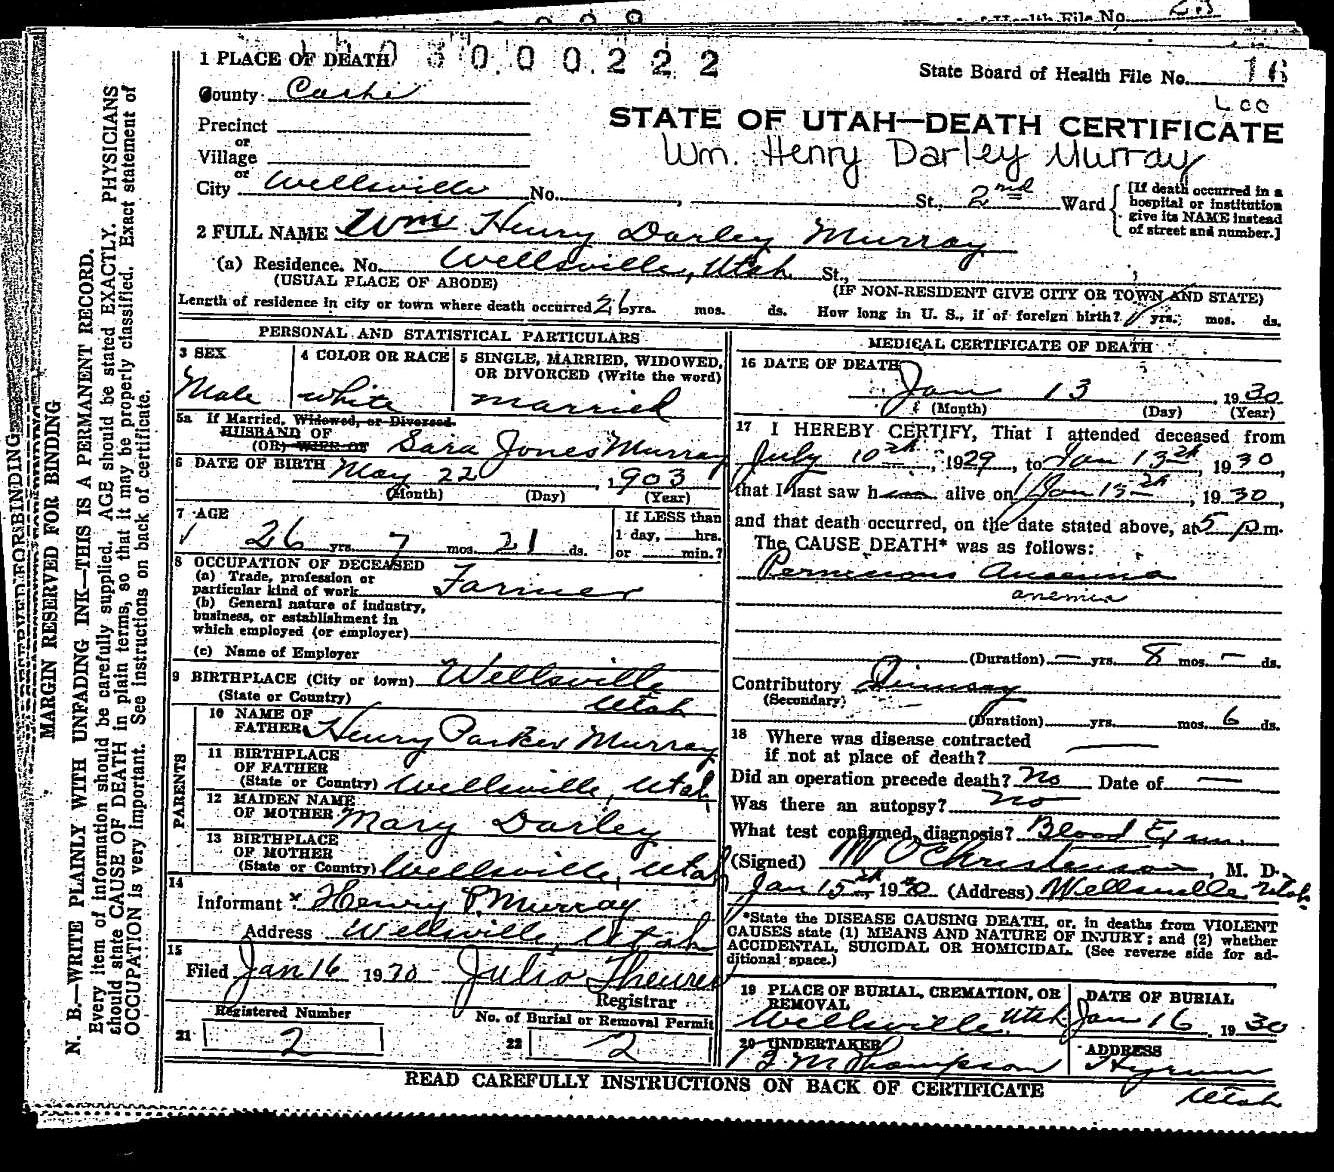 of Health File No. 23
3 0 0 0 2 2 2
1 PLACE OF DEATH
State Board of Health File No. 16
County Cache
STATE OF UTAH—DEATH CERTIFICATE
Precinct
Wm. Henry Darley Murray
or
Village
or
City Wellsville No. , St. 2nd Ward
[If death occurred in a
hospital or institution
give its NAME instead
of street and number.]
2 FULL NAME Wm Henry Darley Murray
(a) Residence. No. Wellsville, Utah St.,
(USUAL PLACE OF ABODE) (IF NON-RESIDENT GIVE CITY OR TOWN AND STATE)
Length of residence in city or town where death occurred 26 yrs. mos. ds. How long in U. S., if of foreign birth? yrs. mos. ds.
PERSONAL AND STATISTICAL PARTICULARS
3 SEX
Male
4 COLOR OR RACE
white
5 SINGLE, MARRIED, WIDOWED,
OR DIVORCED (Write the word)
married
5a If Married, Widowed, or Divorced
HUSBAND OF
(OR) WIFE OF Sara Jones Murray
6 DATE OF BIRTH May 22, 1903
(Month) (Day) (Year)
7 AGE
26 yrs. 7 mos. 21 ds.
If LESS than
1 day, hrs.
or min.?
8 OCCUPATION OF DECEASED
(a) Trade, profession or
particular kind of work Farmer
(b) General nature of industry,
business, or establishment in
which employed (or employer)
(c) Name of Employer
9 BIRTHPLACE (City or town) Wellsville
(State or Country) Utah
PARENTS
10 NAME OF
FATHER Henry Parker Murray
11 BIRTHPLACE
OF FATHER
(State or Country) Wellsville, Utah
12 MAIDEN NAME
OF MOTHER Mary Darley
13 BIRTHPLACE
OF MOTHER
(State or Country) Wellsville, Utah
14
Informant Henry P. Murray
Address Wellsville, Utah
15
Filed Jan 16 1930 Julia Theurer
Registrar
21 Registered Number
2
22 No. of Burial or Removal Permit
2
MEDICAL CERTIFICATE OF DEATH
16 DATE OF DEATH
Jan 13, 1930
(Month) (Day) (Year)
17 I HEREBY CERTIFY, That I attended deceased from
July 10th, 1929, to Jan 13th, 1930,
that I last saw h alive on Jan 13th, 1930,
and that death occurred, on the date stated above, at 5 p.m.
The CAUSE DEATH* was as follows:
Pernicious
anemia
(Duration) — yrs. 8 mos. — ds.
Contributory
(Secondary)
(Duration) yrs. mos. 6 ds.
18 Where was disease contracted
if not at place of death? —
Did an operation precede death? No Date of —
Was there an autopsy? no
What test confirmed diagnosis? Blood Exam.
(Signed) W O Christenson, M. D.
Jan 15th 1930 (Address) Wellsville Utah.
*State the DISEASE CAUSING DEATH, or, in deaths from VIOLENT
CAUSES state (1) MEANS AND NATURE OF INJURY; and (2) whether
ACCIDENTAL, SUICIDAL OR HOMICIDAL. (See reverse side for ad-
ditional space.)
19 PLACE OF BURIAL, CREMATION, OR
REMOVAL
Wellsville Utah
DATE OF BURIAL
Jan 16, 1930
20 UNDERTAKER
M Thompson
ADDRESS
Hyrum
Utah
READ CAREFULLY INSTRUCTIONS ON BACK OF CERTIFICATE
MARGIN RESERVED FOR BINDING
N. B.—WRITE PLAINLY WITH UNFADING INK—THIS IS A PERMANENT RECORD.
Every item of information should be carefully supplied. AGE should be stated EXACTLY. PHYSICIANS
should state CAUSE OF DEATH in plain terms, so that it may be properly classified. Exact statement of
OCCUPATION is very important. See instructions on back of certificate.